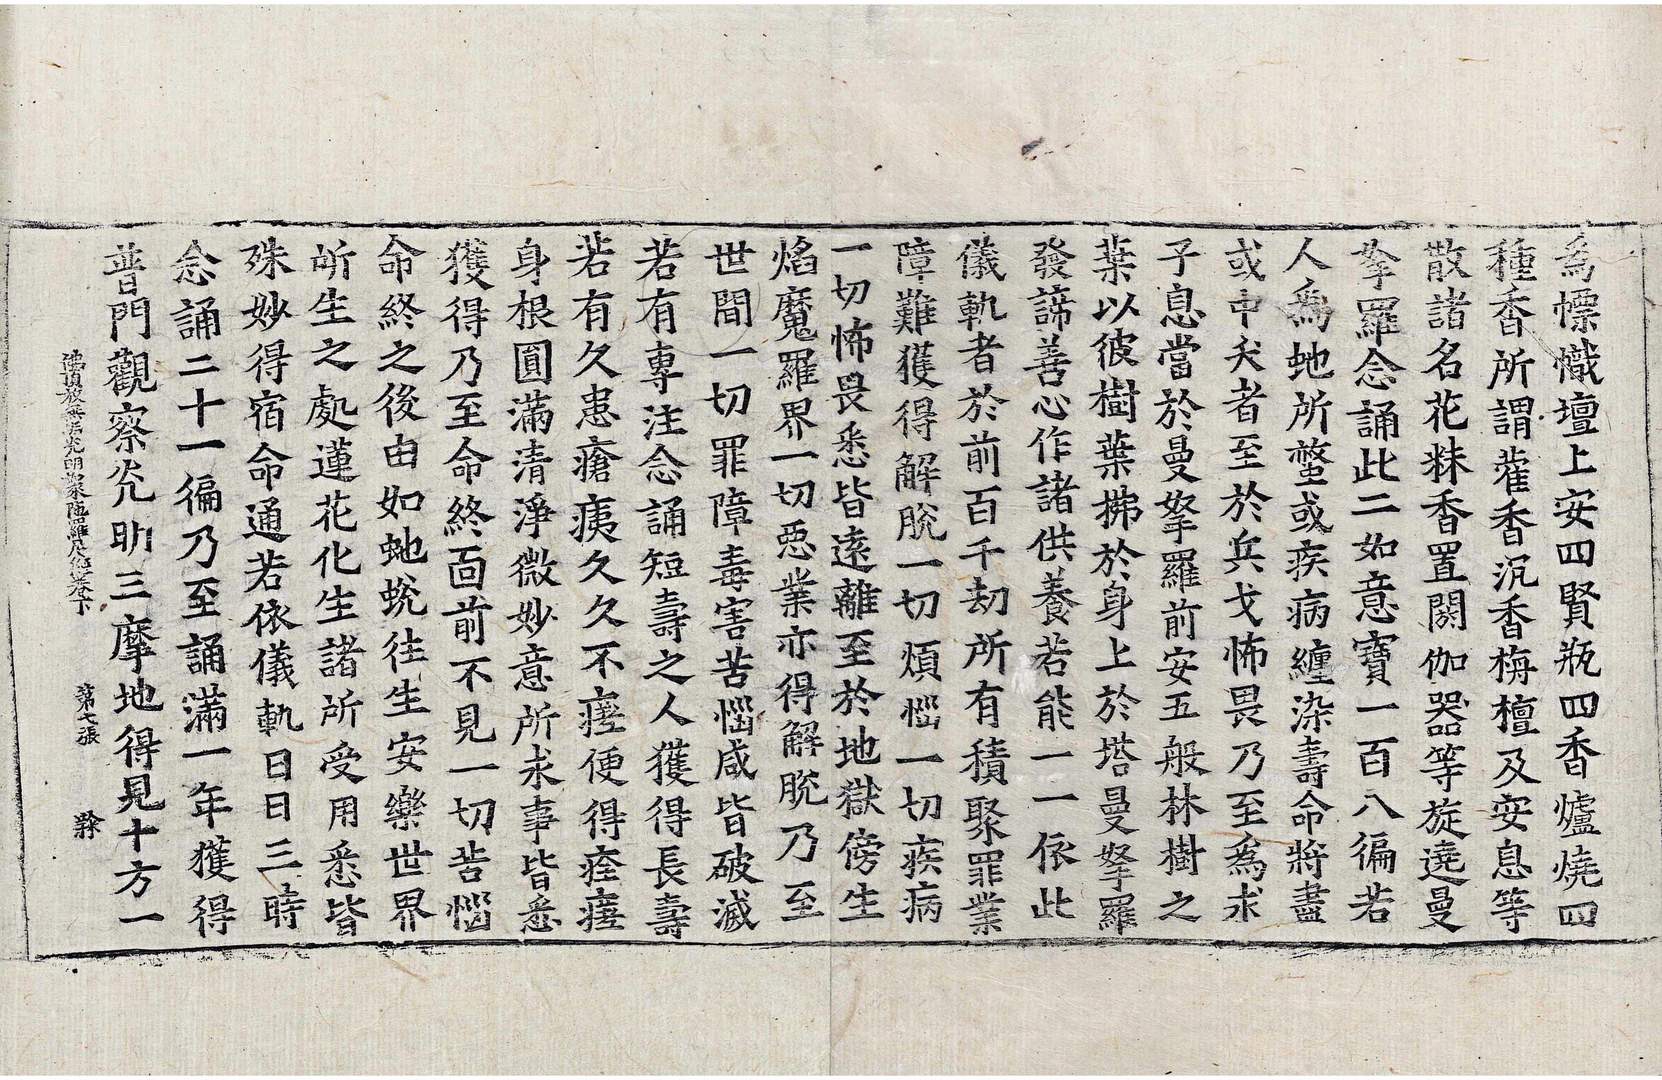 為幖幟壇上安四賢瓶四香爐燒四
種香所謂藿香沉香栴檀及安息等
散諸名花秣香置閼伽器等旋遶曼
拏羅念誦此二如意寶一百八徧若
人為虵所螫或疾病纏染壽命將盡
或中夭者至於兵戈怖畏乃至為求
子息當於曼拏羅前安五般林樹之
葉以彼樹葉拂於身上於塔曼拏羅
發諦善心作諸供養若能一一依此
儀軌者於前百千劫所有積聚罪業
障難獲得解脫一切煩惱一切疾病
一切怖畏悉皆遠離至於地獄傍生
焰魔羅界一切惡業亦得解脫乃至
世間一切罪障毒害苦惱咸皆破滅
若有專注念誦短壽之人獲得長壽
若有久患瘡痍久久不瘥便得痊瘥
身根圓滿清淨微妙意所求事皆悉
獲得乃至命終面前不見一切苦惱
命終之後由如虵蛻往生安樂世界
所生之處蓮花化生諸所受用悉皆
殊妙得宿命通若依儀軌日日三時
念誦二十一徧乃至誦滿一年獲得
普門觀察光助三摩地得見十方一
佛頂放無垢光明 陁羅尼經卷下 第七張